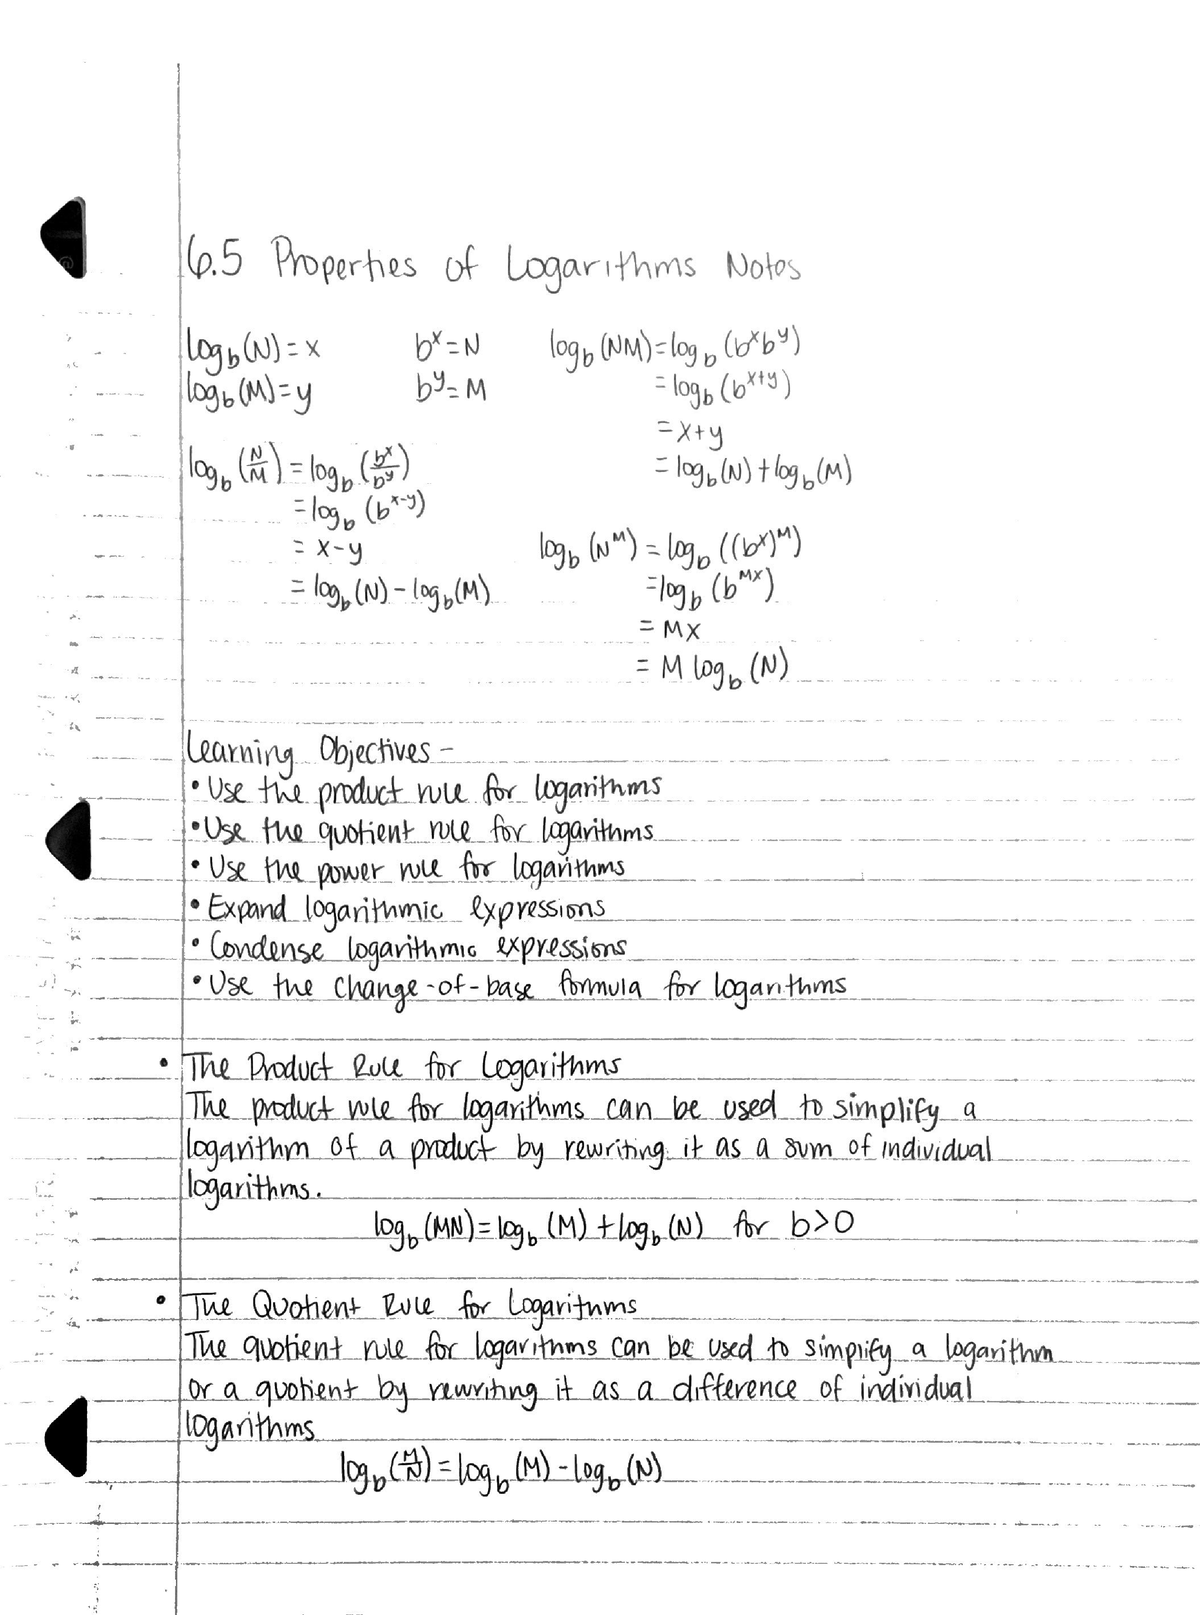 6.5 Properties of Logarithms Notes
log_b(N)=x
log_b(M)=y
b^x=N
b^y=M
log_b(NM)=log_b(b^x b^y)
=log_b(b^(x+y))
=x+y
=log_b(N)+log_b(M)
log_b(N/M)=log_b(b^x/b^y)
=log_b(b^(x-y))
=x-y
=log_b(N)-log_b(M)
log_b(N^M)=log_b((b^x)^M)
=log_b(b^(Mx))
=Mx
=M log_b(N)
Learning Objectives -
• Use the product rule for logarithms
• Use the quotient rule for logarithms
• Use the power rule for logarithms
• Expand logarithmic expressions
• Condense logarithmic expressions
• Use the change-of-base formula for logarithms
• The Product Rule for Logarithms
The product rule for logarithms can be used to simplify a
logarithm of a product by rewriting it as a sum of individual
logarithms.
log_b(MN)=log_b(M)+log_b(N) for b>0
• The Quotient Rule for Logarithms
The quotient rule for logarithms can be used to simplify a logarithm
or a quotient by rewriting it as a difference of individual
logarithms
log_b(M/N)=log_b(M)-log_b(N)